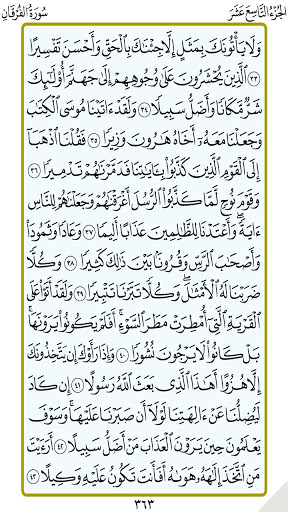 الجزء التاسع عشر
سورة الفرقان
وَلَا يَأْتُونَكَ بِمَثَلٍ إِلَّا جِئْنَٰكَ بِٱلْحَقِّ وَأَحْسَنَ تَفْسِيرًا
٣٣ ٱلَّذِينَ يُحْشَرُونَ عَلَىٰ وُجُوهِهِمْ إِلَىٰ جَهَنَّمَ أُو۟لَٰٓئِكَ
شَرٌّ مَّكَانًا وَأَضَلُّ سَبِيلًا ٣٤ وَلَقَدْ ءَاتَيْنَا مُوسَى ٱلْكِتَٰبَ
وَجَعَلْنَا مَعَهُۥٓ أَخَاهُ هَٰرُونَ وَزِيرًا ٣٥ فَقُلْنَا ٱذْهَبَآ
إِلَى ٱلْقَوْمِ ٱلَّذِينَ كَذَّبُوا۟ بِـَٔايَٰتِنَا فَدَمَّرْنَٰهُمْ تَدْمِيرًا ٣٦
وَقَوْمَ نُوحٍ لَّمَّا كَذَّبُوا۟ ٱلرُّسُلَ أَغْرَقْنَٰهُمْ وَجَعَلْنَٰهُمْ لِلنَّاسِ
ءَايَةً وَأَعْتَدْنَا لِلظَّٰلِمِينَ عَذَابًا أَلِيمًا ٣٧ وَعَادًا وَثَمُودَا۟
وَأَصْحَٰبَ ٱلرَّسِّ وَقُرُونًۢا بَيْنَ ذَٰلِكَ كَثِيرًا ٣٨ وَكُلًّا
ضَرَبْنَا لَهُ ٱلْأَمْثَٰلَ وَكُلًّا تَبَّرْنَا تَتْبِيرًا ٣٩ وَلَقَدْ أَتَوْا۟ عَلَى
ٱلْقَرْيَةِ ٱلَّتِىٓ أُمْطِرَتْ مَطَرَ ٱلسَّوْءِ أَفَلَمْ يَكُونُوا۟ يَرَوْنَهَا
بَلْ كَانُوا۟ لَا يَرْجُونَ نُشُورًا ٤٠ وَإِذَا رَأَوْكَ إِن يَتَّخِذُونَكَ
إِلَّا هُزُوًا أَهَٰذَا ٱلَّذِى بَعَثَ ٱللَّهُ رَسُولًا ٤١ إِن كَادَ
لَيُضِلُّنَا عَنْ ءَالِهَتِنَا لَوْلَآ أَن صَبَرْنَا عَلَيْهَا وَسَوْفَ
يَعْلَمُونَ حِينَ يَرَوْنَ ٱلْعَذَابَ مَنْ أَضَلُّ سَبِيلًا ٤٢ أَرَءَيْتَ
مَنِ ٱتَّخَذَ إِلَٰهَهُۥ هَوَىٰهُ أَفَأَنتَ تَكُونُ عَلَيْهِ وَكِيلًا ٤٣
٣٦٣